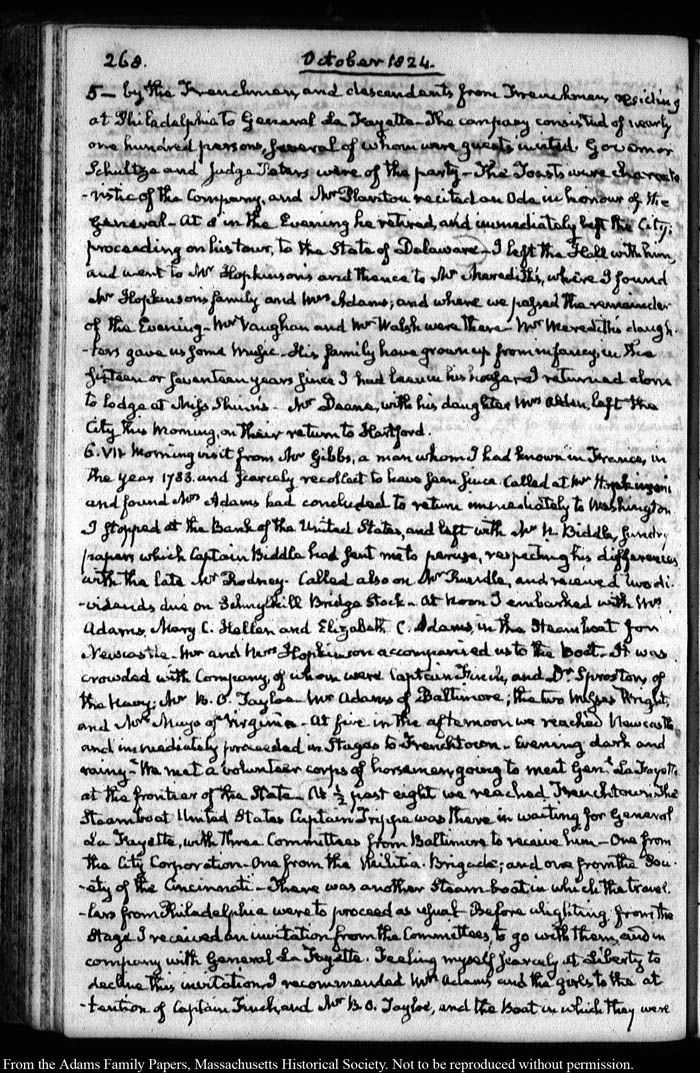 268.
October 1824.
5— by the Frenchmen, and descendants from Frenchmen, residing
at Philadelphia to General La Fayette—The company consisted of nearly
one hundred persons, several of whom were guests invited. Governor
Schultze and Judge Peters were of the party—The Toasts were characte-
-ristic of the Company, and Mr recited an Ode in honour of the
General—At 8 in the Evening he retired, and immediately left the City;
proceeding on his tour, to the State of Delaware—I left the Hall with him,
and went to Mr Hopkinson's and thence to Mr Meredith's, where I found
Mr Hopkinson's family and Mrs Adams; and where we passed the remainder
of the Evening—Mr Vaughan and Mr Walsh were there—Mr Meredith's daugh-
-ters gave us some Music—His family have grown up from infancy, in the
fifteen or seventeen years since I had been in his house—I returned alone
to lodge at Miss Mr Deane, with his daughter Mrs Alden, left the
City this Morning, on their return to Hartford.
6. VII. Morning visit from Mr Gibbs, a man whom I had known in France, in
the year 1783. and scarcely recollect to have seen since. Called at Mr Hopkinson's
and found Mrs Adams had concluded to return immediately to Washington
I stopped at the Bank of the United States, and left with Mr N. Biddle, sundry
papers which Captain Biddle had sent me to peruse, respecting his differences
with the late Mr Rodney. Called also on Mr and received two di-
-vidends due on Schuylkill Bridge Stock—At Noon I embarked with Mrs
Adams, Mary C. Hellen and Elizabeth C. Adams, in the Steam boat for
Newcastle—Mr and Mrs Hopkinson accompanied us to the Boat—It was
crowded with Company, of whom were Captain and Dr. Sproston, of
the Navy; Mr B. O. Tayloe—Mr Adams of Baltimore; the two Misses Wright,
and Mrs Mayo of Virginia—At five in the afternoon we reached Newcastle
and immediately proceeded in Stages to Frenchtown—Evening dark and
rainy—We met a volunteer corps of horsemen, going to meet Genl. La Fayette
at the frontier of the State—At ½ past eight we reached Frenchtown. The
Steam boat United States Captain Trippe was there in waiting for General
La Fayette, with three Committees from Baltimore to receive him—One from
the City Corporation—One from the Militia Brigade; and one from the Soci-
-ety of the Cincinnati—There was another Steam boat in which the travel-
-lers from Philadelphia were to proceed as usual—Before alighting from the
Stage I received an invitation from the Committees, to go with them, and in
company with General La Fayette. Feeling myself scarcely at Liberty to
decline this invitation, I recommended Mrs Adams and the girls to the at-
-tention of Captain and Mr B. O. Tayloe, and the Boat in which they were
From the Adams Family Papers, Massachusetts Historical Society. Not to be reproduced without permission.